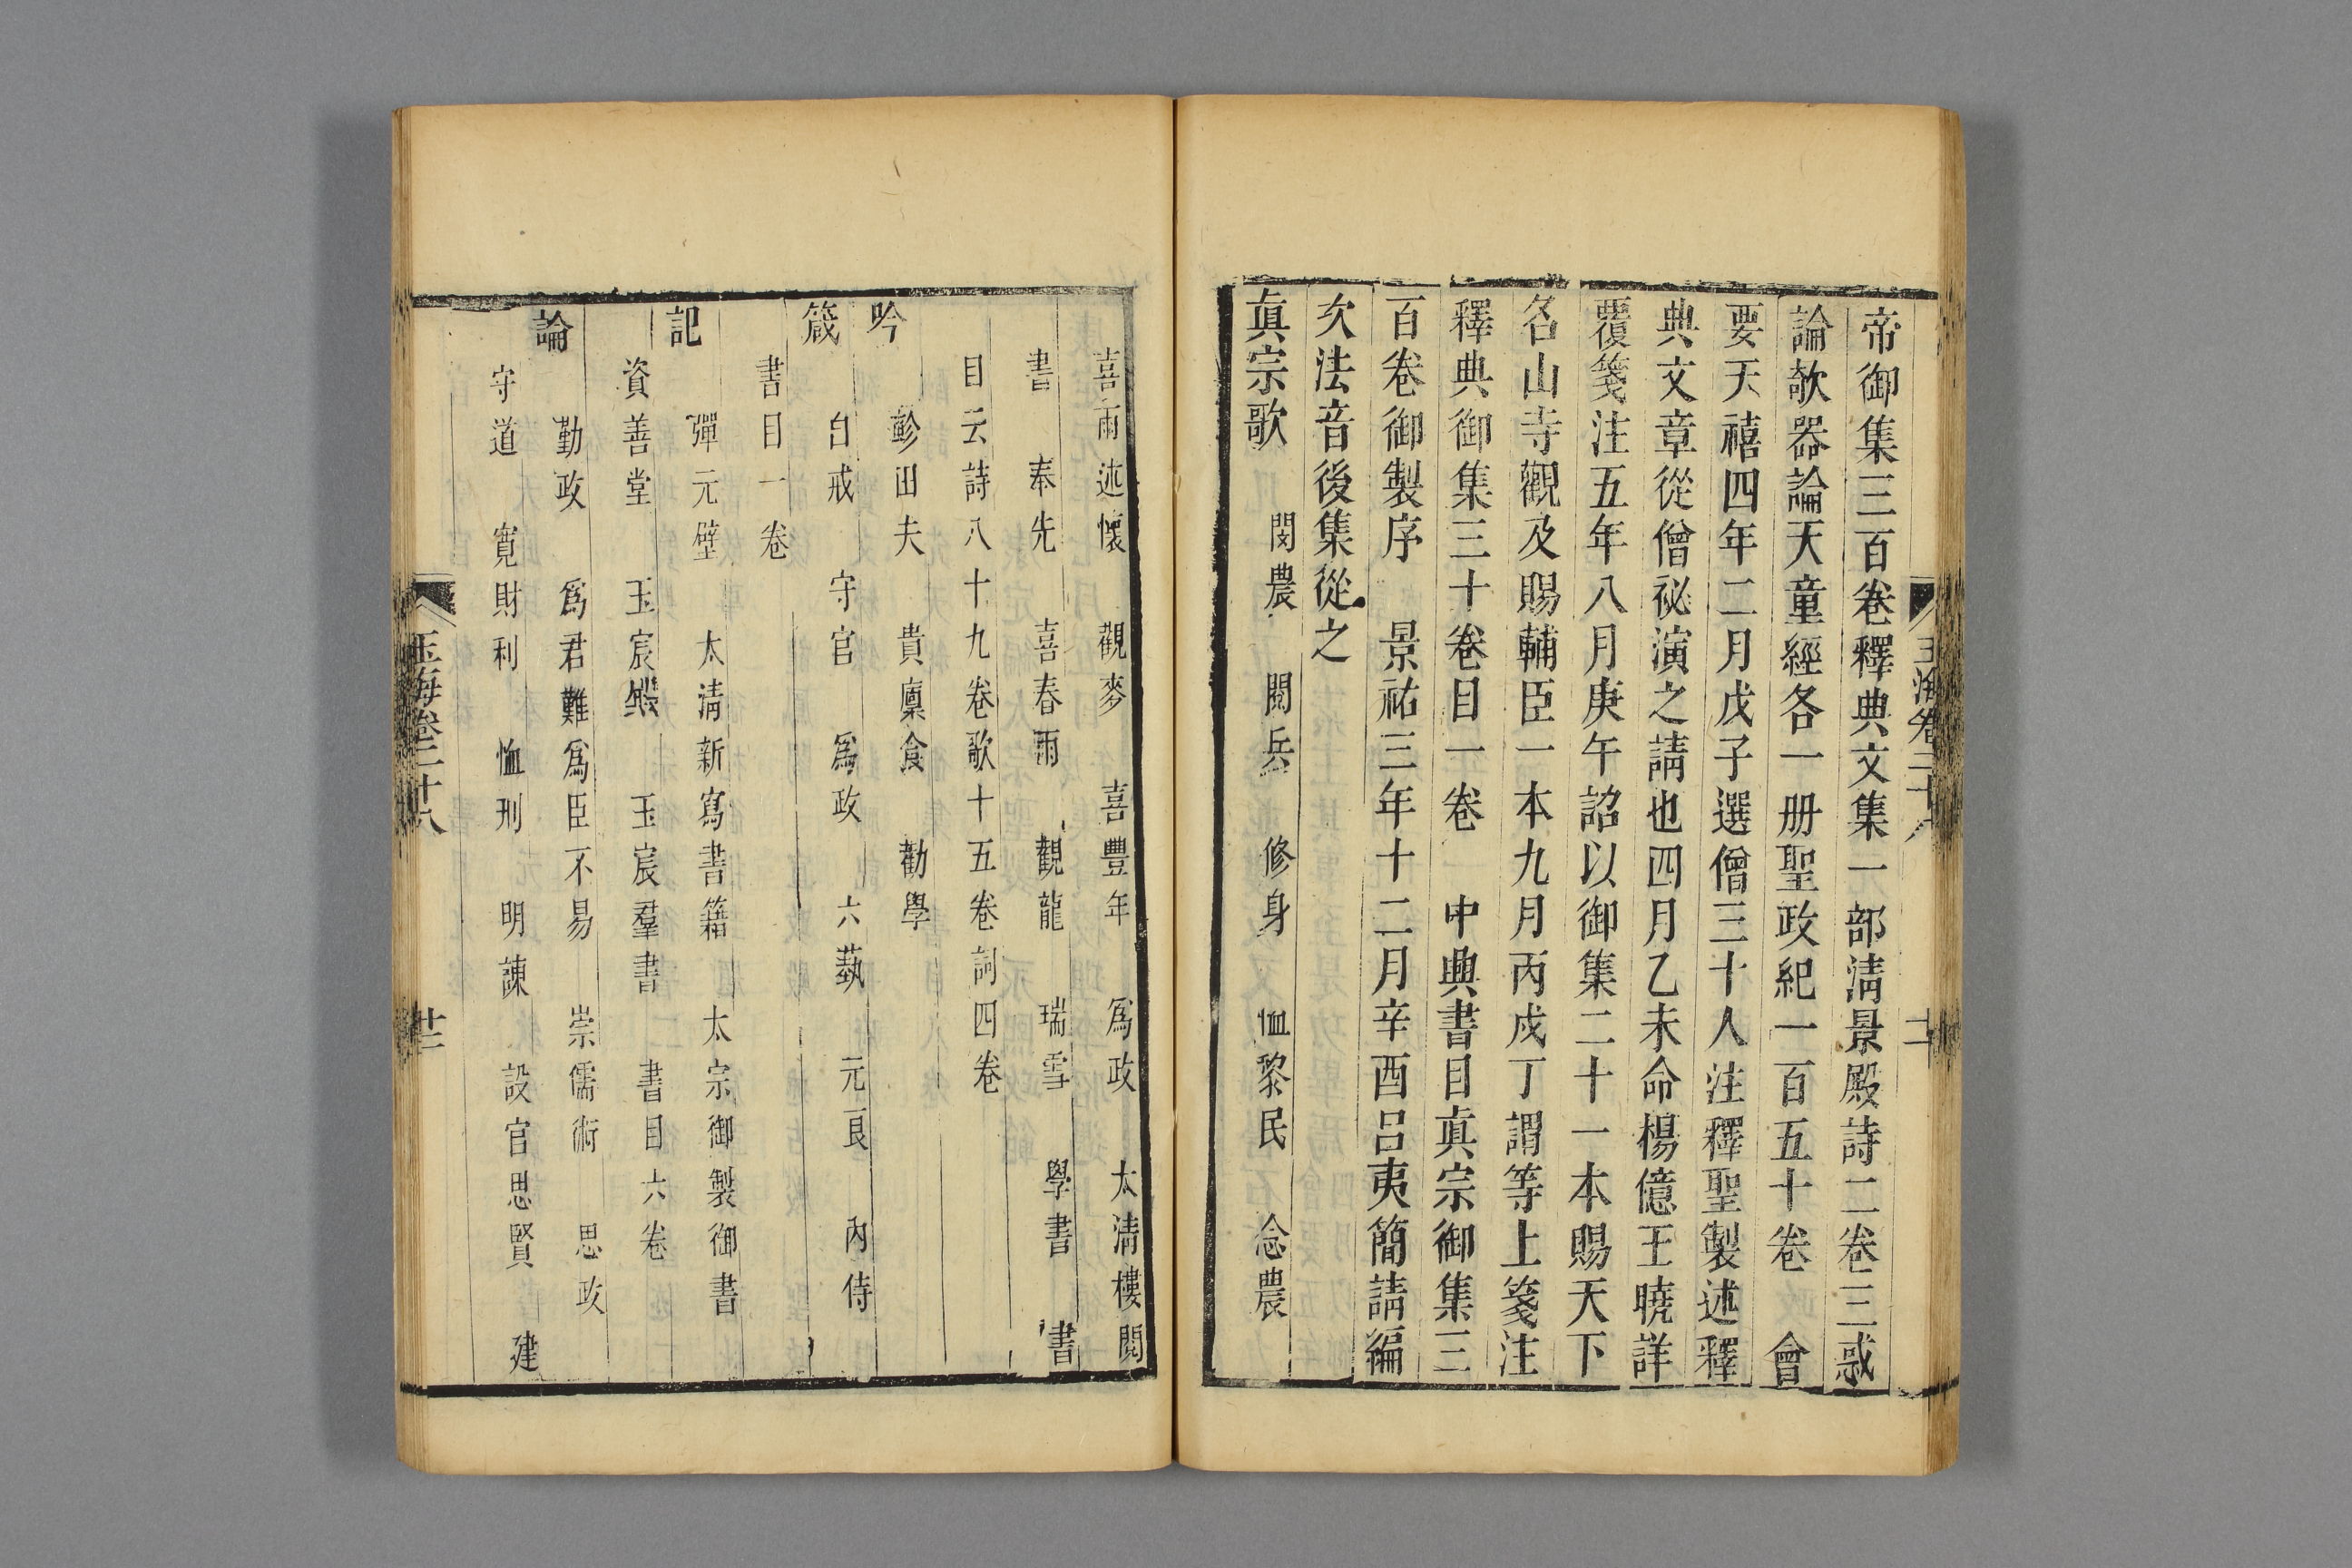 帝御集三百卷釋典文集一部清景殿詩二卷三惑
論欹器論天童經各一册聖政紀一百五十卷　會
要天禧四年二月戊子選僧三十人注釋聖製述釋
典文章從僧祕演之請也四月乙未命楊億王曉詳
覆箋注五年八月庚午詔以御集二十一本賜天下
名山寺觀及賜輔臣一本九月丙戌丁謂等上箋注
釋典御集三十卷目一卷　中典書目真宗御集三
百卷御製序　景祐三年十二月辛酉呂夷簡請編
次法音後集從之
真宗歌　閔農　閱兵　修身　恤黎民　念農
喜雨述懷　觀麥　喜豐年　爲政　太清樓閱
書　奉先　喜春雨　觀龍　瑞雪　學書　書
目云詩八十九卷歌十五卷詞四卷
吟　畛田夫　貴廩食　勸學
箴　自戒　守官　爲政　六藝　元良　內侍
書目一卷
記　彈元壁　太清新寫書籍　太宗御製御書
資善堂　玉宸殿　玉宸羣書　書目六卷
論　勤政　爲君難爲臣不易　崇儒術　思政
守道　寬財利　恤刑　明諫　設官思賢　建
玉海卷二十八
廿二